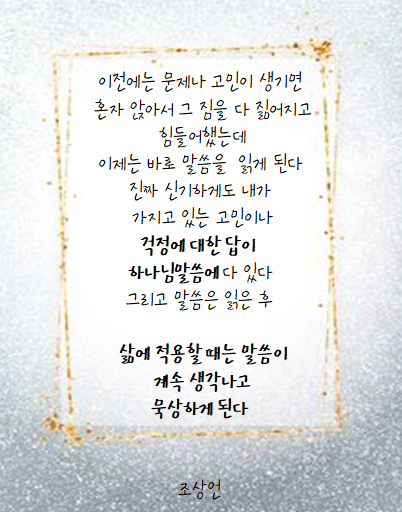 이전에는 문제나 고민이 생기면
혼자 앉아서 그 짐을 다 짊어지고
힘들어했는데
이제는 바로 말씀을 읽게 된다
진짜 신기하게도 내가
가지고 있는 고민이나
걱정에 대한 답이
하나님말씀에 다 있다
그리고 말씀은 읽은 후
삶에 적용할 때는 말씀이
계속 생각나고
묵상하게 된다
조상언